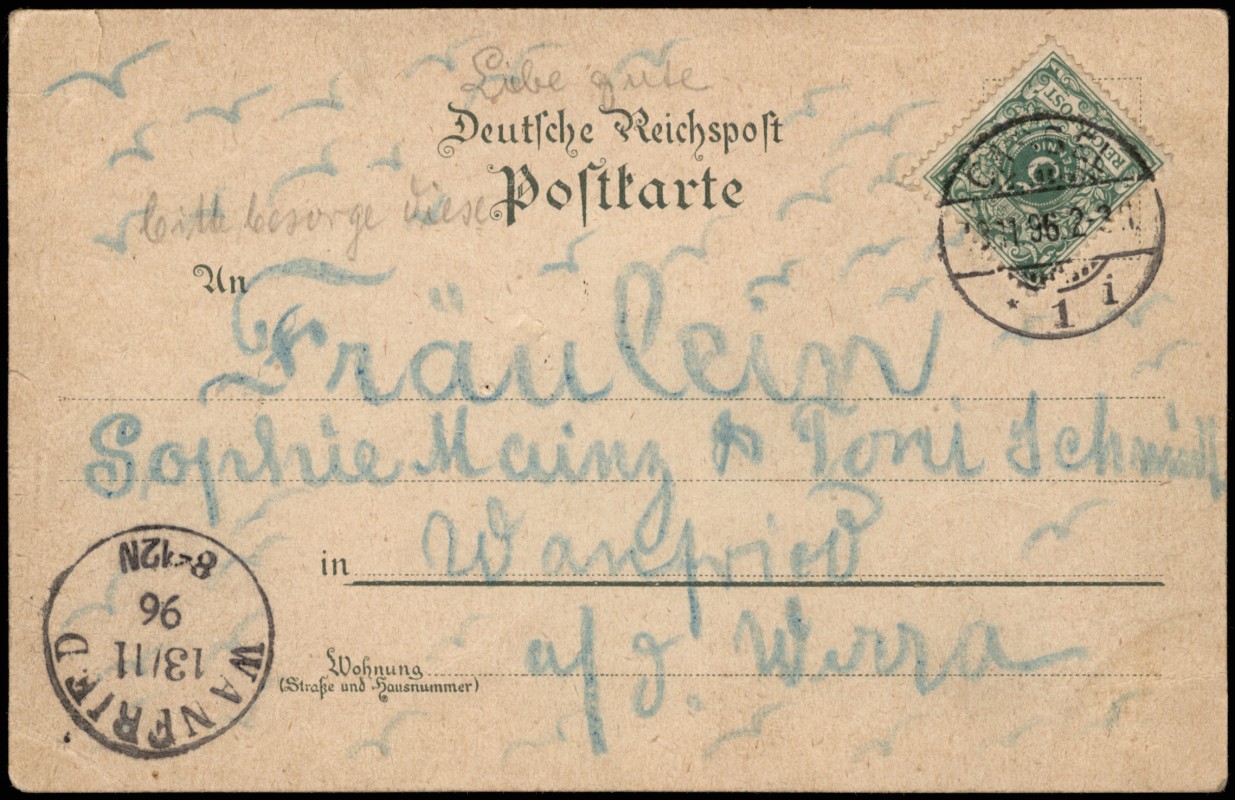 Liebe gute
Deutsche Reichspost
Postkarte
bitte besorge diese
An
Fräulein
Sophie Mainz & Toni Schmidt
in Wanfried
a/d. Werra
Wohnung
(Straße und Hausnummer)
REICHSPOST
5
96 2-3N
* 1 i
WANFRIED
13/11
96
8-12N